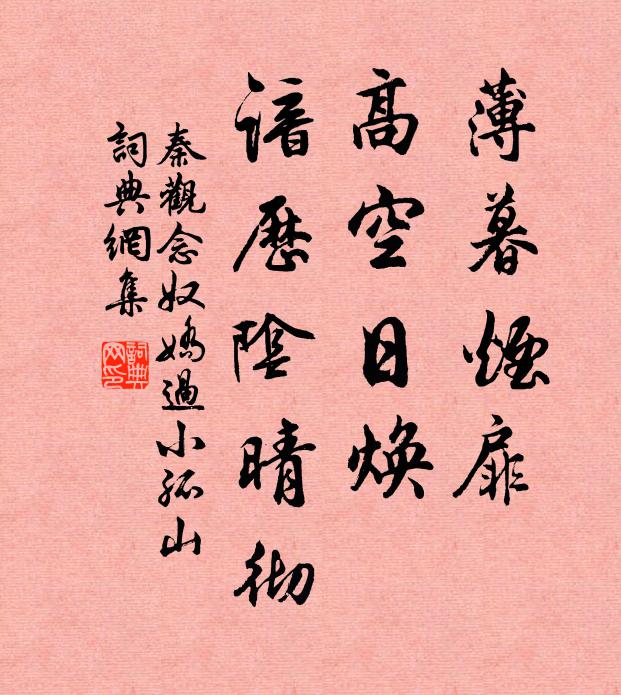 薄暮煙扉
高空日煥
諳歷陰晴彻
秦觀念奴嬌過小孤山
詞典網集
詞典網印